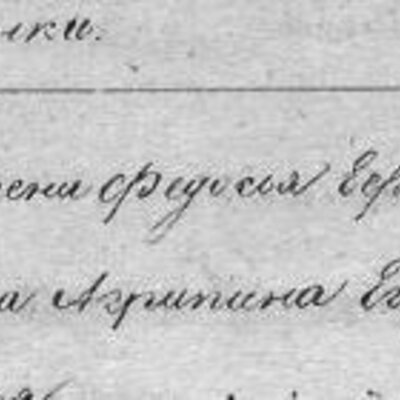 лки.
ени Федосья Еф
на Агрипина Ев